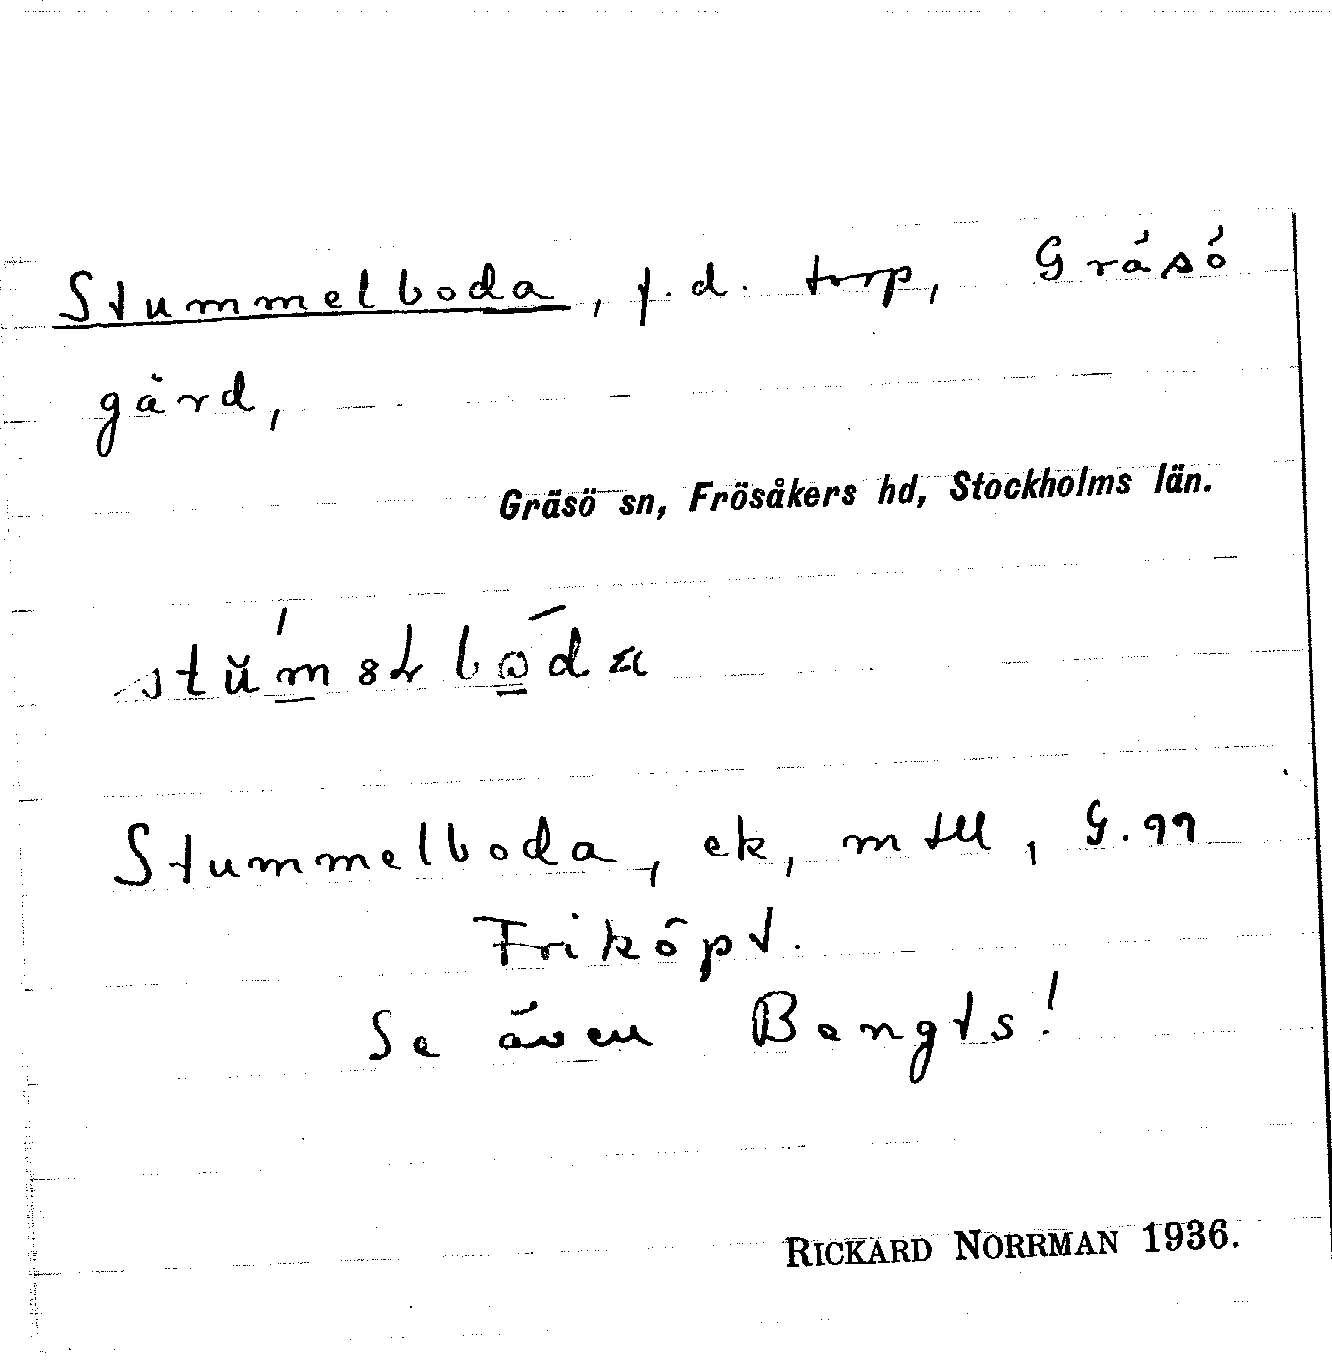 Stummelboda, f.d. torp, Gräsö
gård,
Gräsö sn, Frösåkers hd, Stockholms län.
Stummelboda, ek, mtll, G.99
Friköpt.
Se även Bengts!
RICKARD NORRMAN 1936.